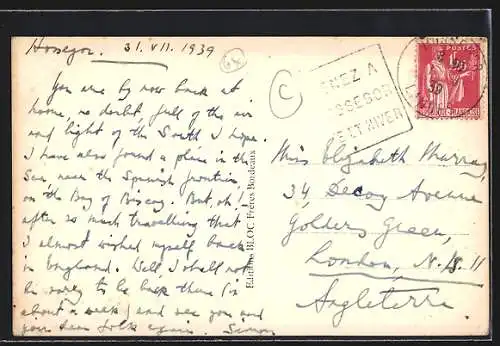 Hossegor. 31. VII. 1939
You are by now back at
home, no doubt full of the air
and light of the South I hope.
I have also found a place in the
Sun, near the Spanish frontier,
on the Bay of Biscay. But, oh!,
after so much travelling that
I almost wished myself back
in England. Well, I shall not
be sorry to be back there (in
about a week) and see you and
your dear folks again. Simon
Editions BLOC Frères Bordeaux
C
VENEZ A
HOSSEGOR
ETE ET HIVER
POSTES
Miss Elizabeth Murray,
34, Decoy Avenue
Golders Green,
London, N.W. 11
Angleterre.